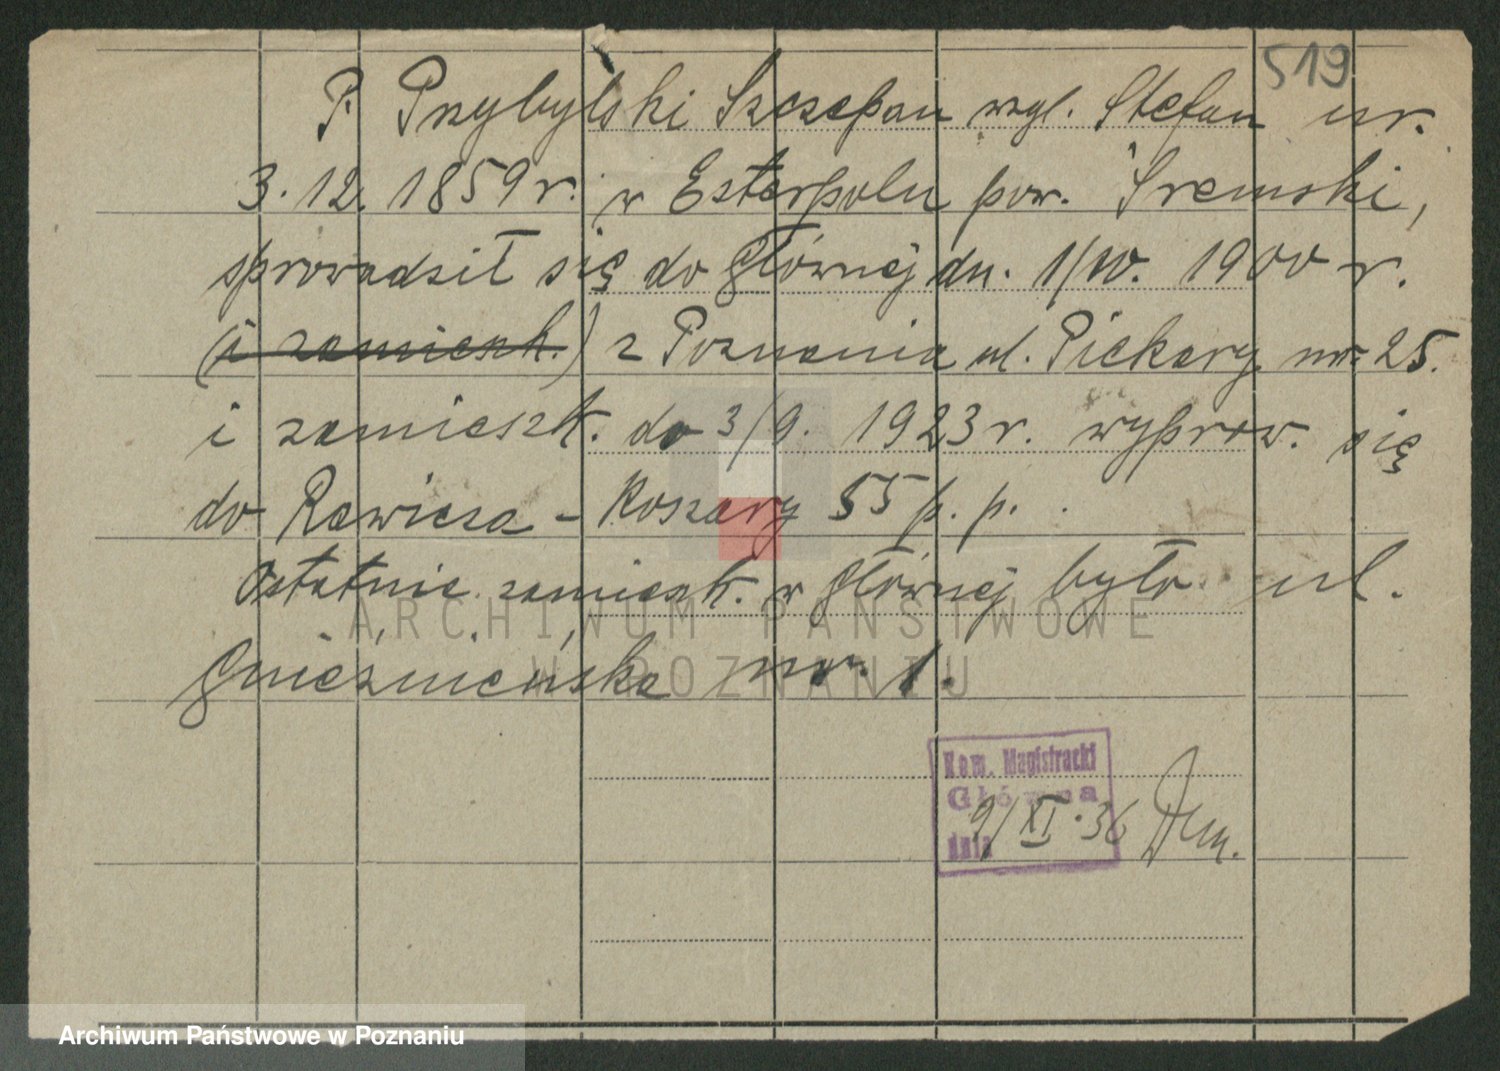 519
P. Przybylski Szczepan wzgl. Stefan ur.
3.12.1859 r. w Esterpolu pow. Śremski,
sprowadził się do Głównej dn. 1/IV. 1900 r.
(i zamieszk.) z Poznania ul. Piekary nr. 25.
i zamieszk. do 3/9. 1923 r. wyprow. się
do Rawicza - Koszary 55 p. p.
Ostatnie zamieszk. w Głównej było ul.
Gnieźnieńska nr. 1.
Kom. Magistracki
Główna
dnia 9/XI.36
ARCHIWUM PAŃSTWOWE
W POZNANIU
Archiwum Państwowe w Poznaniu